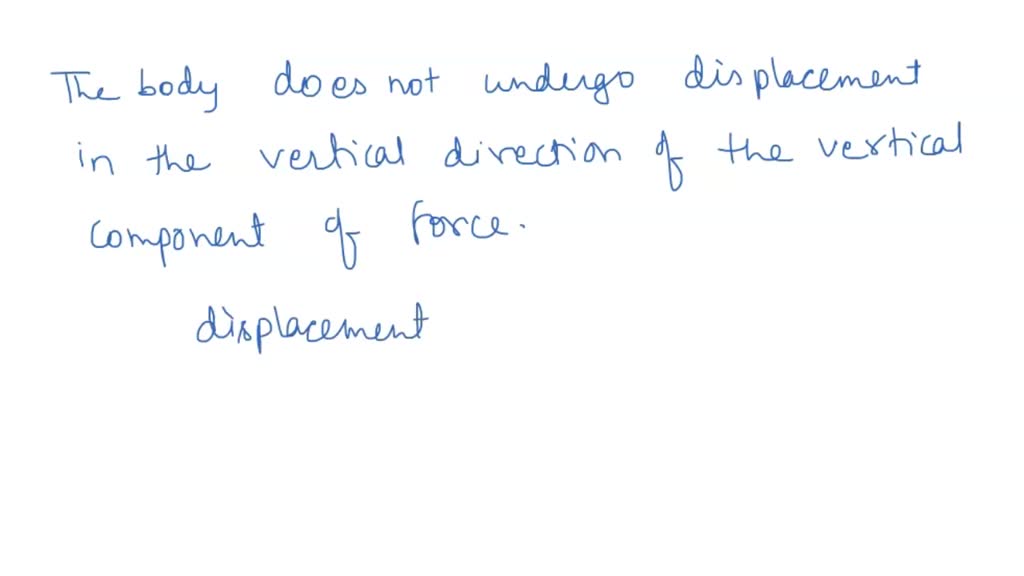 The body does not undergo displacement
in the vertical direction of the vertical
component of force.
displacement